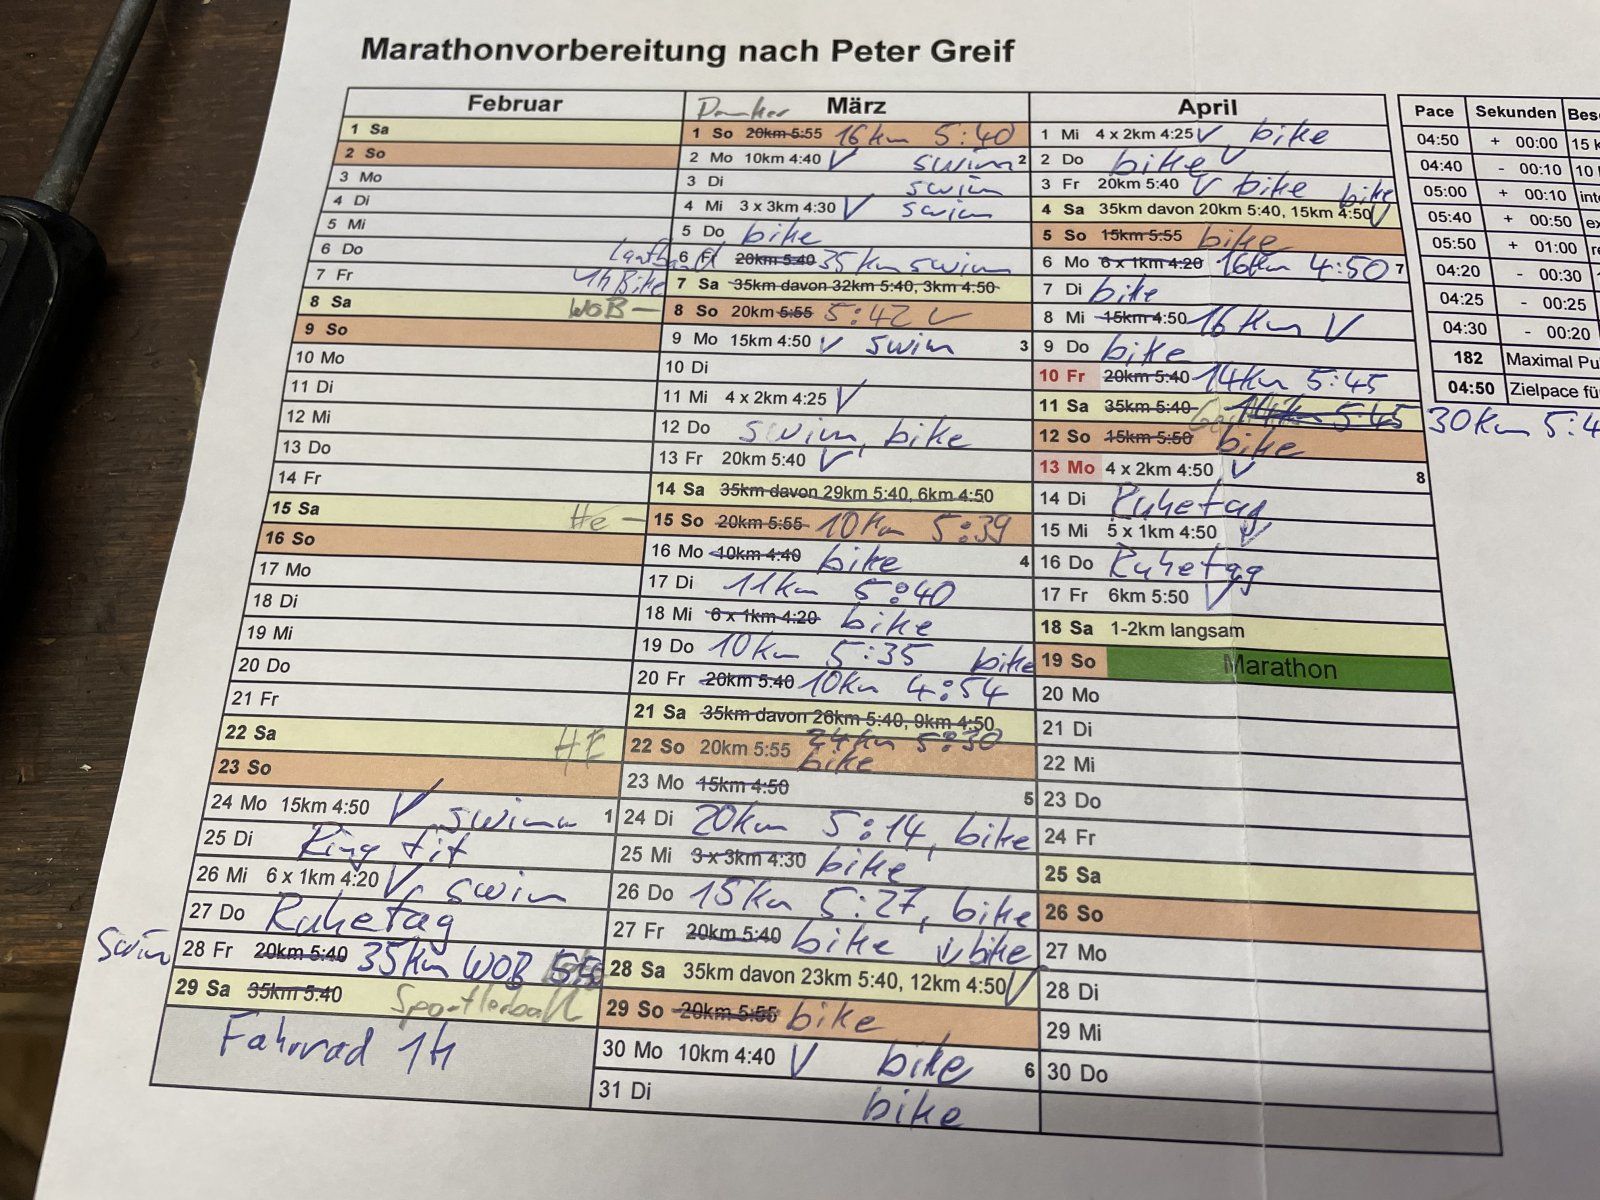 Marathonvorbereitung nach Peter Greif
Februar
1 Sa
2 So
3 Mo
4 Di
5 Mi
6 Do
7 Fr 1h Bike
8 Sa WOB –
9 So
10 Mo
11 Di
12 Mi
13 Do
14 Fr
15 Sa He –
16 So
17 Mo
18 Di
19 Mi
20 Do
21 Fr
22 Sa HE
23 So
24 Mo 15km 4:50 swim 1
25 Di Ring fit
26 Mi 6 x 1km 4:20 , swim
27 Do Ruhetag
swim 28 Fr 20km 5:40 35km WOB
29 Sa 35km 5:40 Sportlerball
Fahrrad 1H
März
1 So 20km 5:55 16km 5:40
2 Mo 10km 4:40 swim 2
3 Di swim
4 Mi 3 x 3km 4:30 swim
5 Do bike
6 Fr 20km 5:40 35km swim
7 Sa 35km davon 32km 5:40, 3km 4:50
8 So 20km 5:55 5:42
9 Mo 15km 4:50 swim 3
10 Di
11 Mi 4 x 2km 4:25
12 Do swim, bike
13 Fr 20km 5:40
14 Sa 35km davon 29km 5:40, 6km 4:50
15 So 20km 5:55 10km 5:39
16 Mo 10km 4:40 bike 4
17 Di 11km 5:40
18 Mi 6 x 1km 4:20 bike
19 Do 10km 5:35 bike
20 Fr 20km 5:40 10km 4:54
21 Sa 35km davon 26km 5:40, 9km 4:50
24km 5:30
22 So 20km 5:55 bike
23 Mo 15km 4:50 5
24 Di 20km 5:14, bike
25 Mi 3 x 3km 4:30 bike
26 Do 15km 5:27, bike
27 Fr 20km 5:40 bike bike
28 Sa 35km davon 23km 5:40, 12km 4:50
29 So 20km 5:55 bike
30 Mo 10km 4:40 bike 6
31 Di bike
April
1 Mi 4 x 2km 4:25 bike
2 Do bike
3 Fr 20km 5:40 bike bike
4 Sa 35km davon 20km 5:40, 15km 4:50
5 So 15km 5:55 bike
6 Mo 6 x 1km 4:20 16km 4:50 7
7 Di bike
8 Mi 15km 4:50 16km
9 Do bike
10 Fr 20km 5:40 14km 5:45
11 Sa 35km 5:40 14km 5:45 30km 5:4
12 So 15km 5:50 bike
13 Mo 4 x 2km 4:50 8
14 Di Ruhetag
15 Mi 5 x 1km 4:50
16 Do Ruhetag
17 Fr 6km 5:50
18 Sa 1-2km langsam
19 So Marathon
20 Mo
21 Di
22 Mi
23 Do
24 Fr
25 Sa
26 So
27 Mo
28 Di
29 Mi
30 Do
Pace Sekunden Bes
04:50 + 00:00 15 k
04:40 - 00:10 10
05:00 + 00:10 inte
05:40 + 00:50 ex
05:50 + 01:00 re
04:20 - 00:30
04:25 - 00:25
04:30 - 00:20
182 Maximal Pu
04:50 Zielpace fü